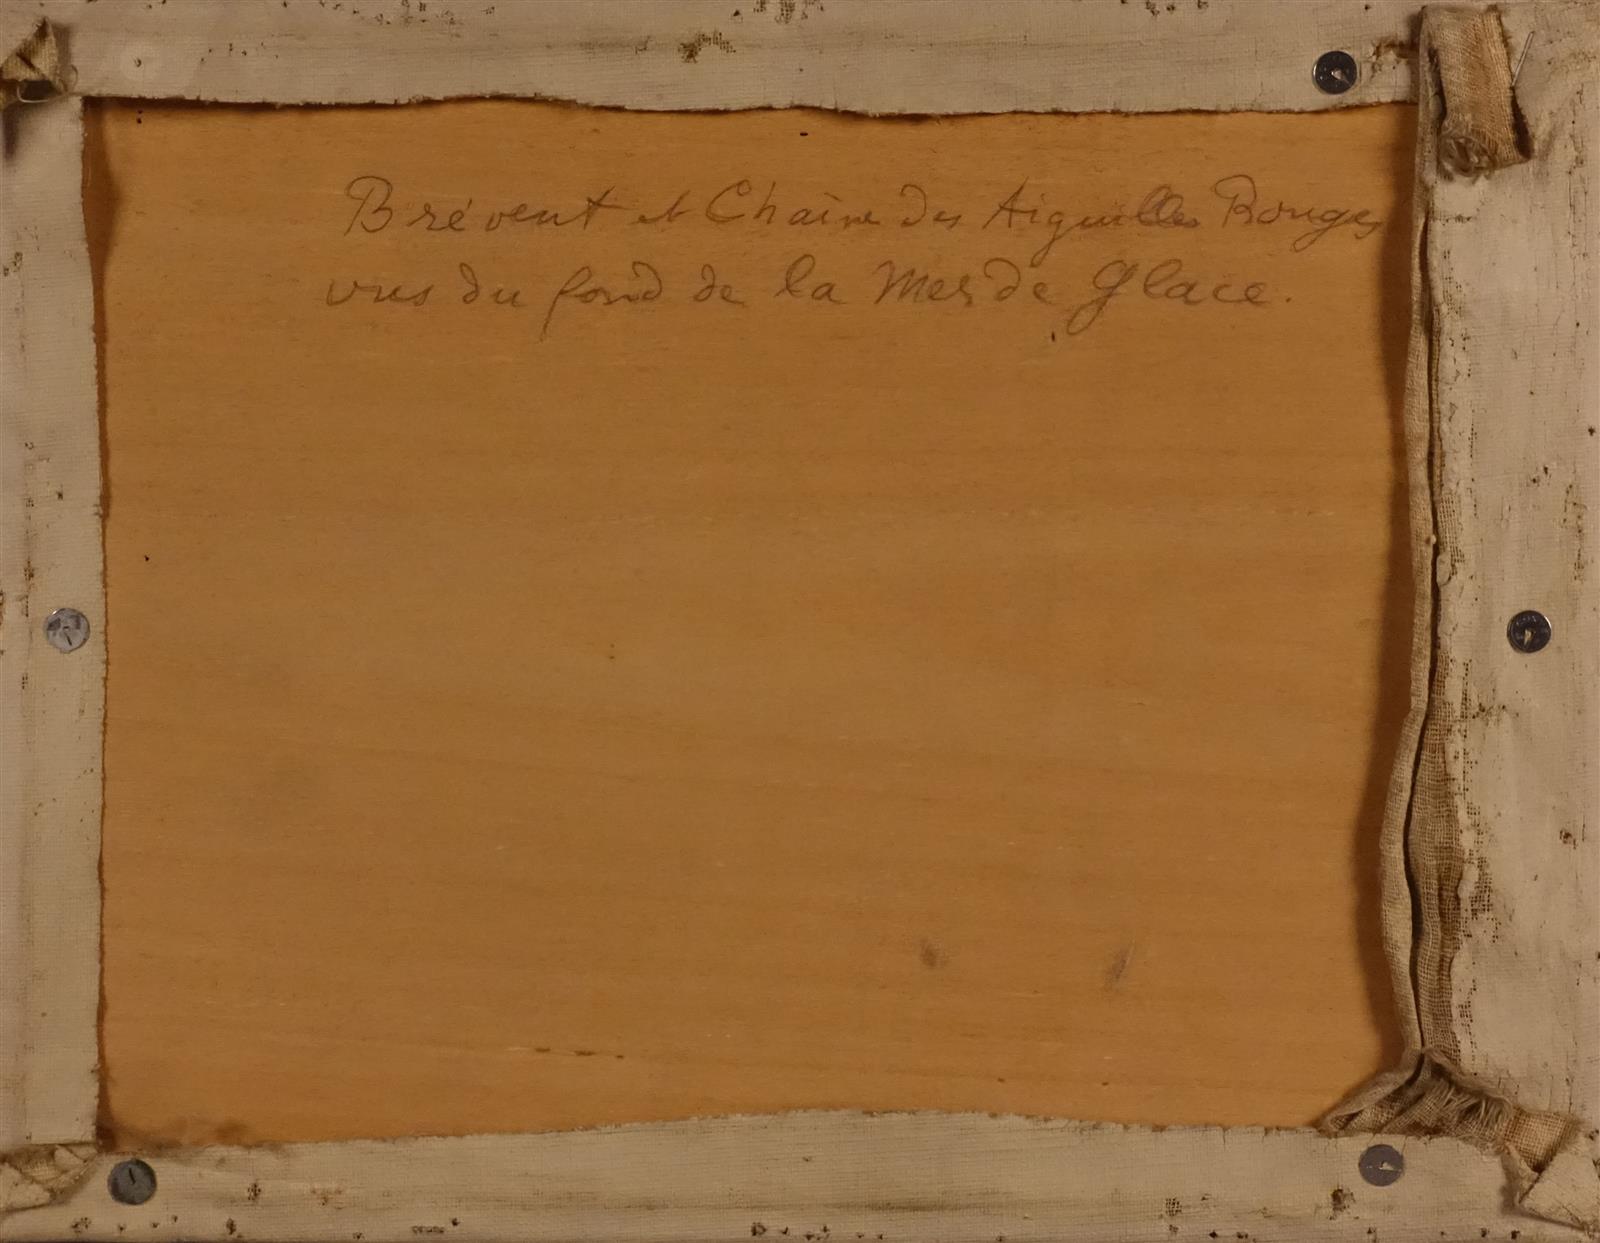 Brévent et Chaîne des Aiguilles Rouges
vus du fond de la Mer de Glace.